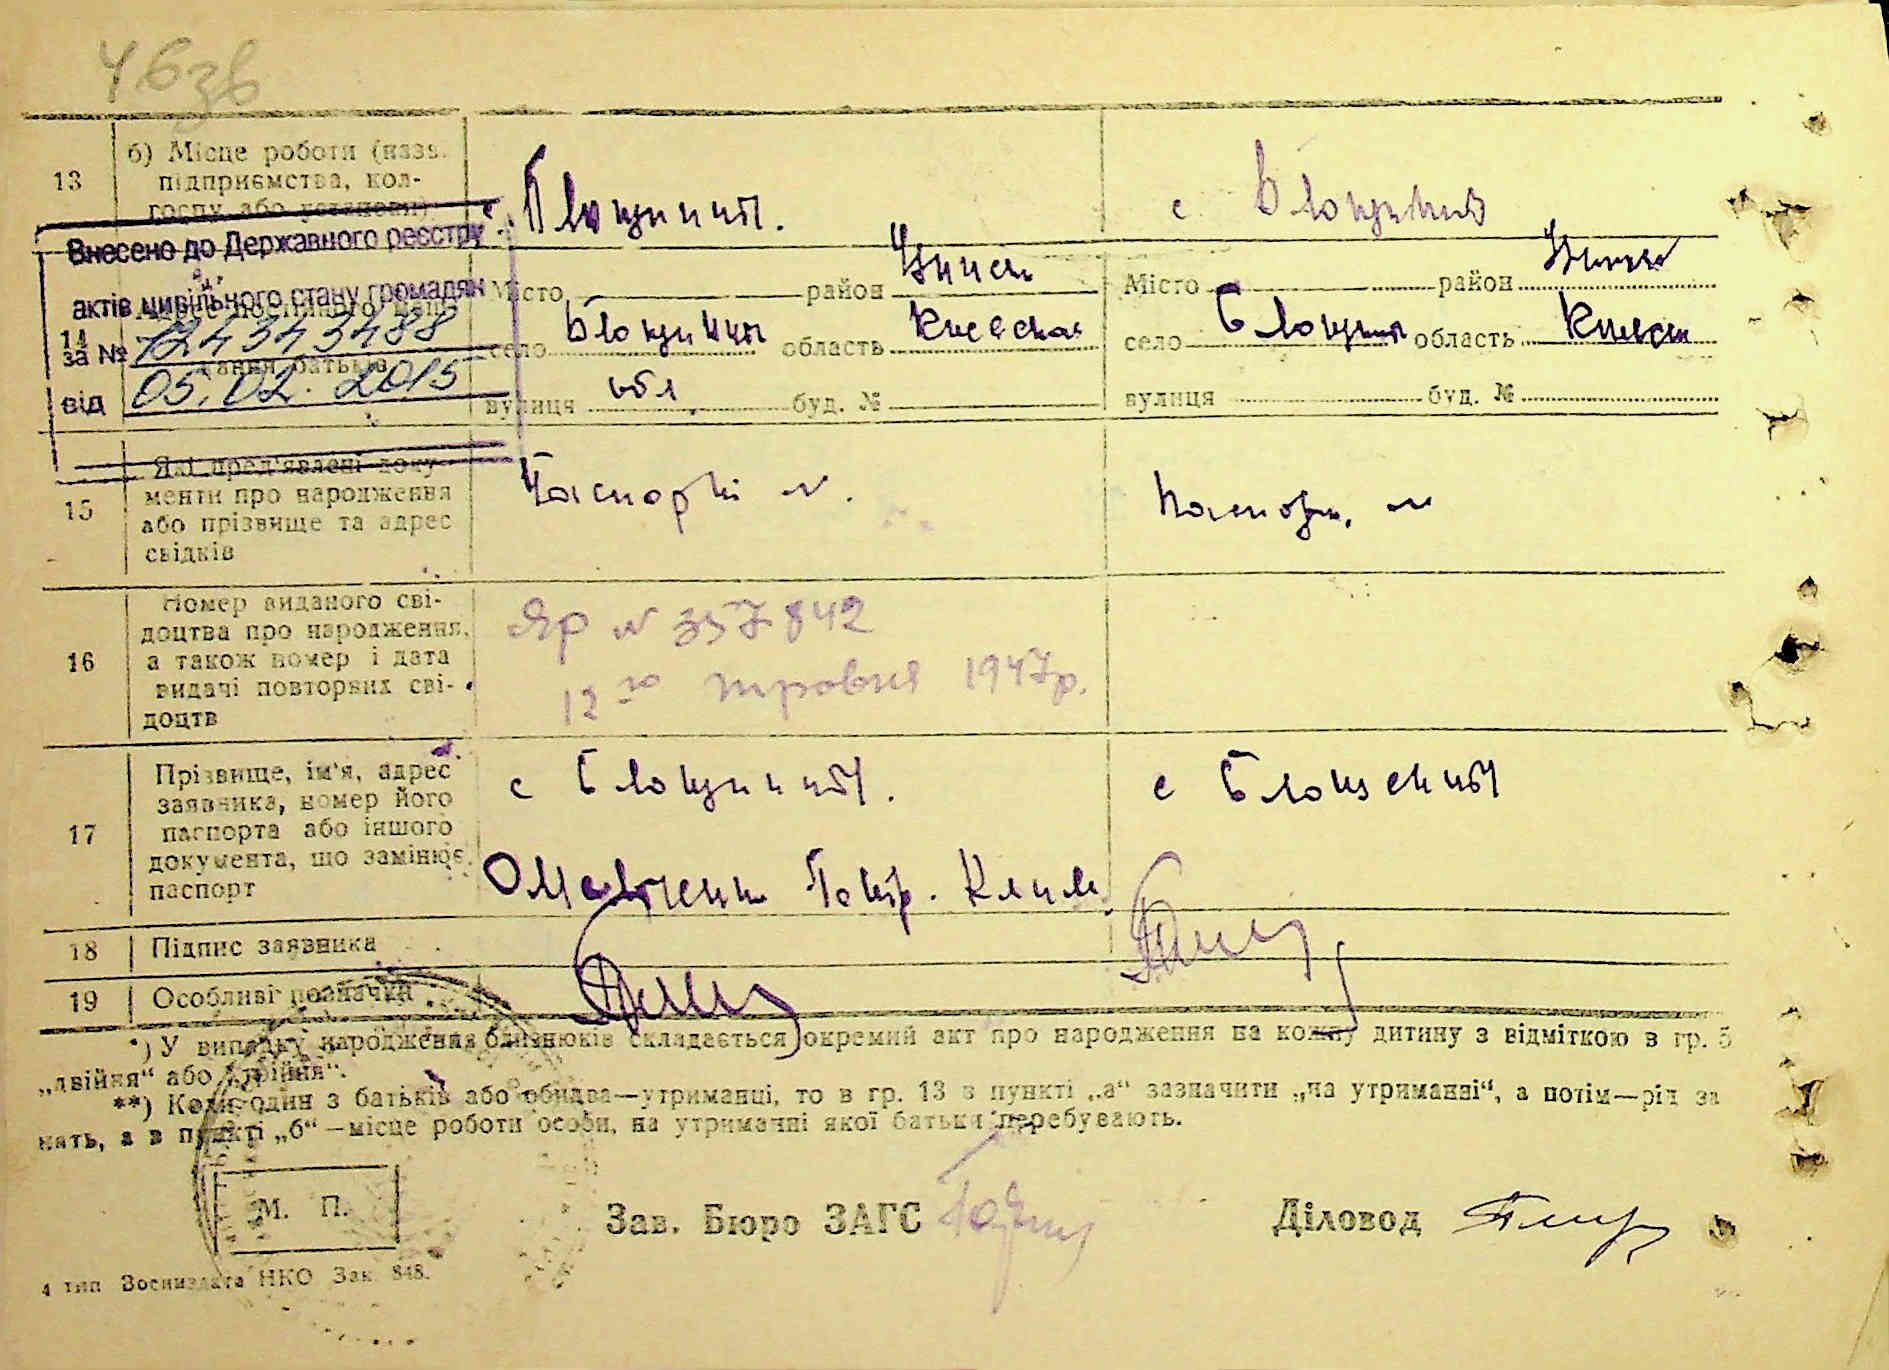 46зв
13
б) Місце роботи (назв.
підприємства, кол-
госпу або установи)
с.
с
Внесено до Державного реєстру
актів цивільного стану громадян
за № 12434З488
від 05.02.2015
14
Адрес постійного
батьків
Місто район
село Блощинці область Киевская
вулиця обл буд. №
Місто район
село Блощинці область Киевск
вулиця буд. №
15
Які пред'явлені доку-
менти про народження
або прізвище та адрес
свідків
Паспорт №.
Паспорт. №
16
Номер виданого сві-
доцтва про народження,
а також номер і дата
видачі повторних сві-
доцтв
ЯР № 357842
12го травня 1947р.
17
Прізвище, ім'я, адрес
заявника, номер його
паспорта або іншого
документа, що замінює
паспорт
с Блощинці.
с Блощенці
18
Підпис заявника
19
Особливі позначки
*) У випадку народження близнюків складається окремий акт про народження на кожну дитину з відміткою в гр. 5
„двійня“ або „трійня“.
**) Коли один з батьків або обидва—утриманці, то в гр. 13 в пункті „а“ зазначити „на утриманні“, а потім—рід за
нять, а в пункті „б“ —місце роботи особи, на утриманні якої батьки перебувають.
М. П.
Зав. Бюро ЗАГС
Діловод
4 тип Воениздата НКО Зак. 848.